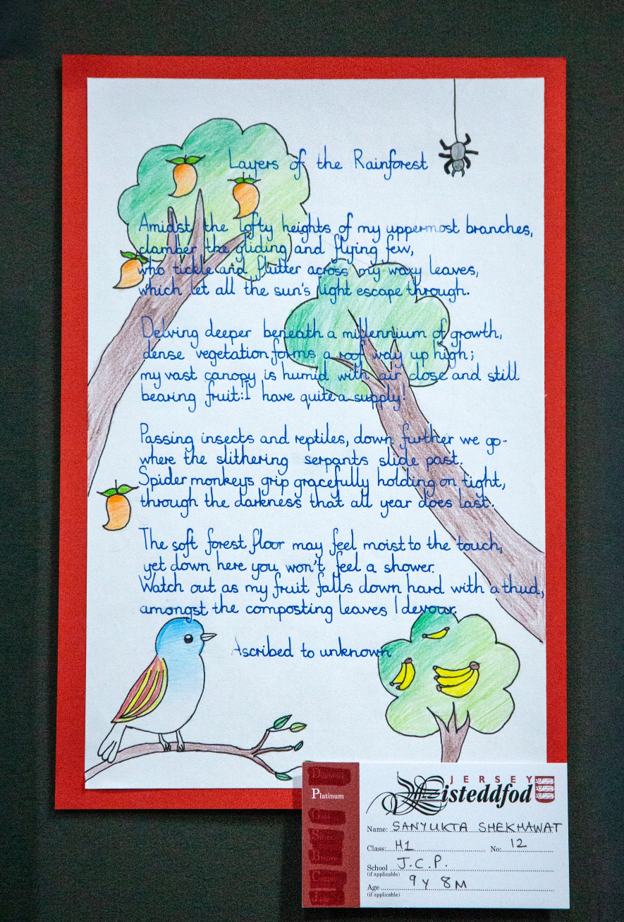 Layers of the Rainforest
Amidst the lofty heights of my uppermost branches,
clamber the gliding and flying few,
who tickle and flutter across my waxy leaves,
which let all the sun's light escape through.
Delving deeper beneath a millennium of growth,
dense vegetation forms a roof way up high;
my vast canopy is humid with air close and still
bearing fruit: I have quite a supply!
Passing insects and reptiles, down further we go-
where the slithering serpants slide past.
Spider monkeys grip gracefully holding on tight,
through the darkness that all year does last.
The soft forest floor may feel moist to the touch,
yet down here you won't feel a shower.
Watch out as my fruit falls down hard with a thud,
amongst the composting leaves I devour.
Ascribed to unknown
Platinum
JERSEY
Eisteddfod
Name: SANYUKTA SHEKHAWAT
Class: H1 No: 12
School J.C.P.
(if applicable)
Age 9 Y 8 M
(if applicable)